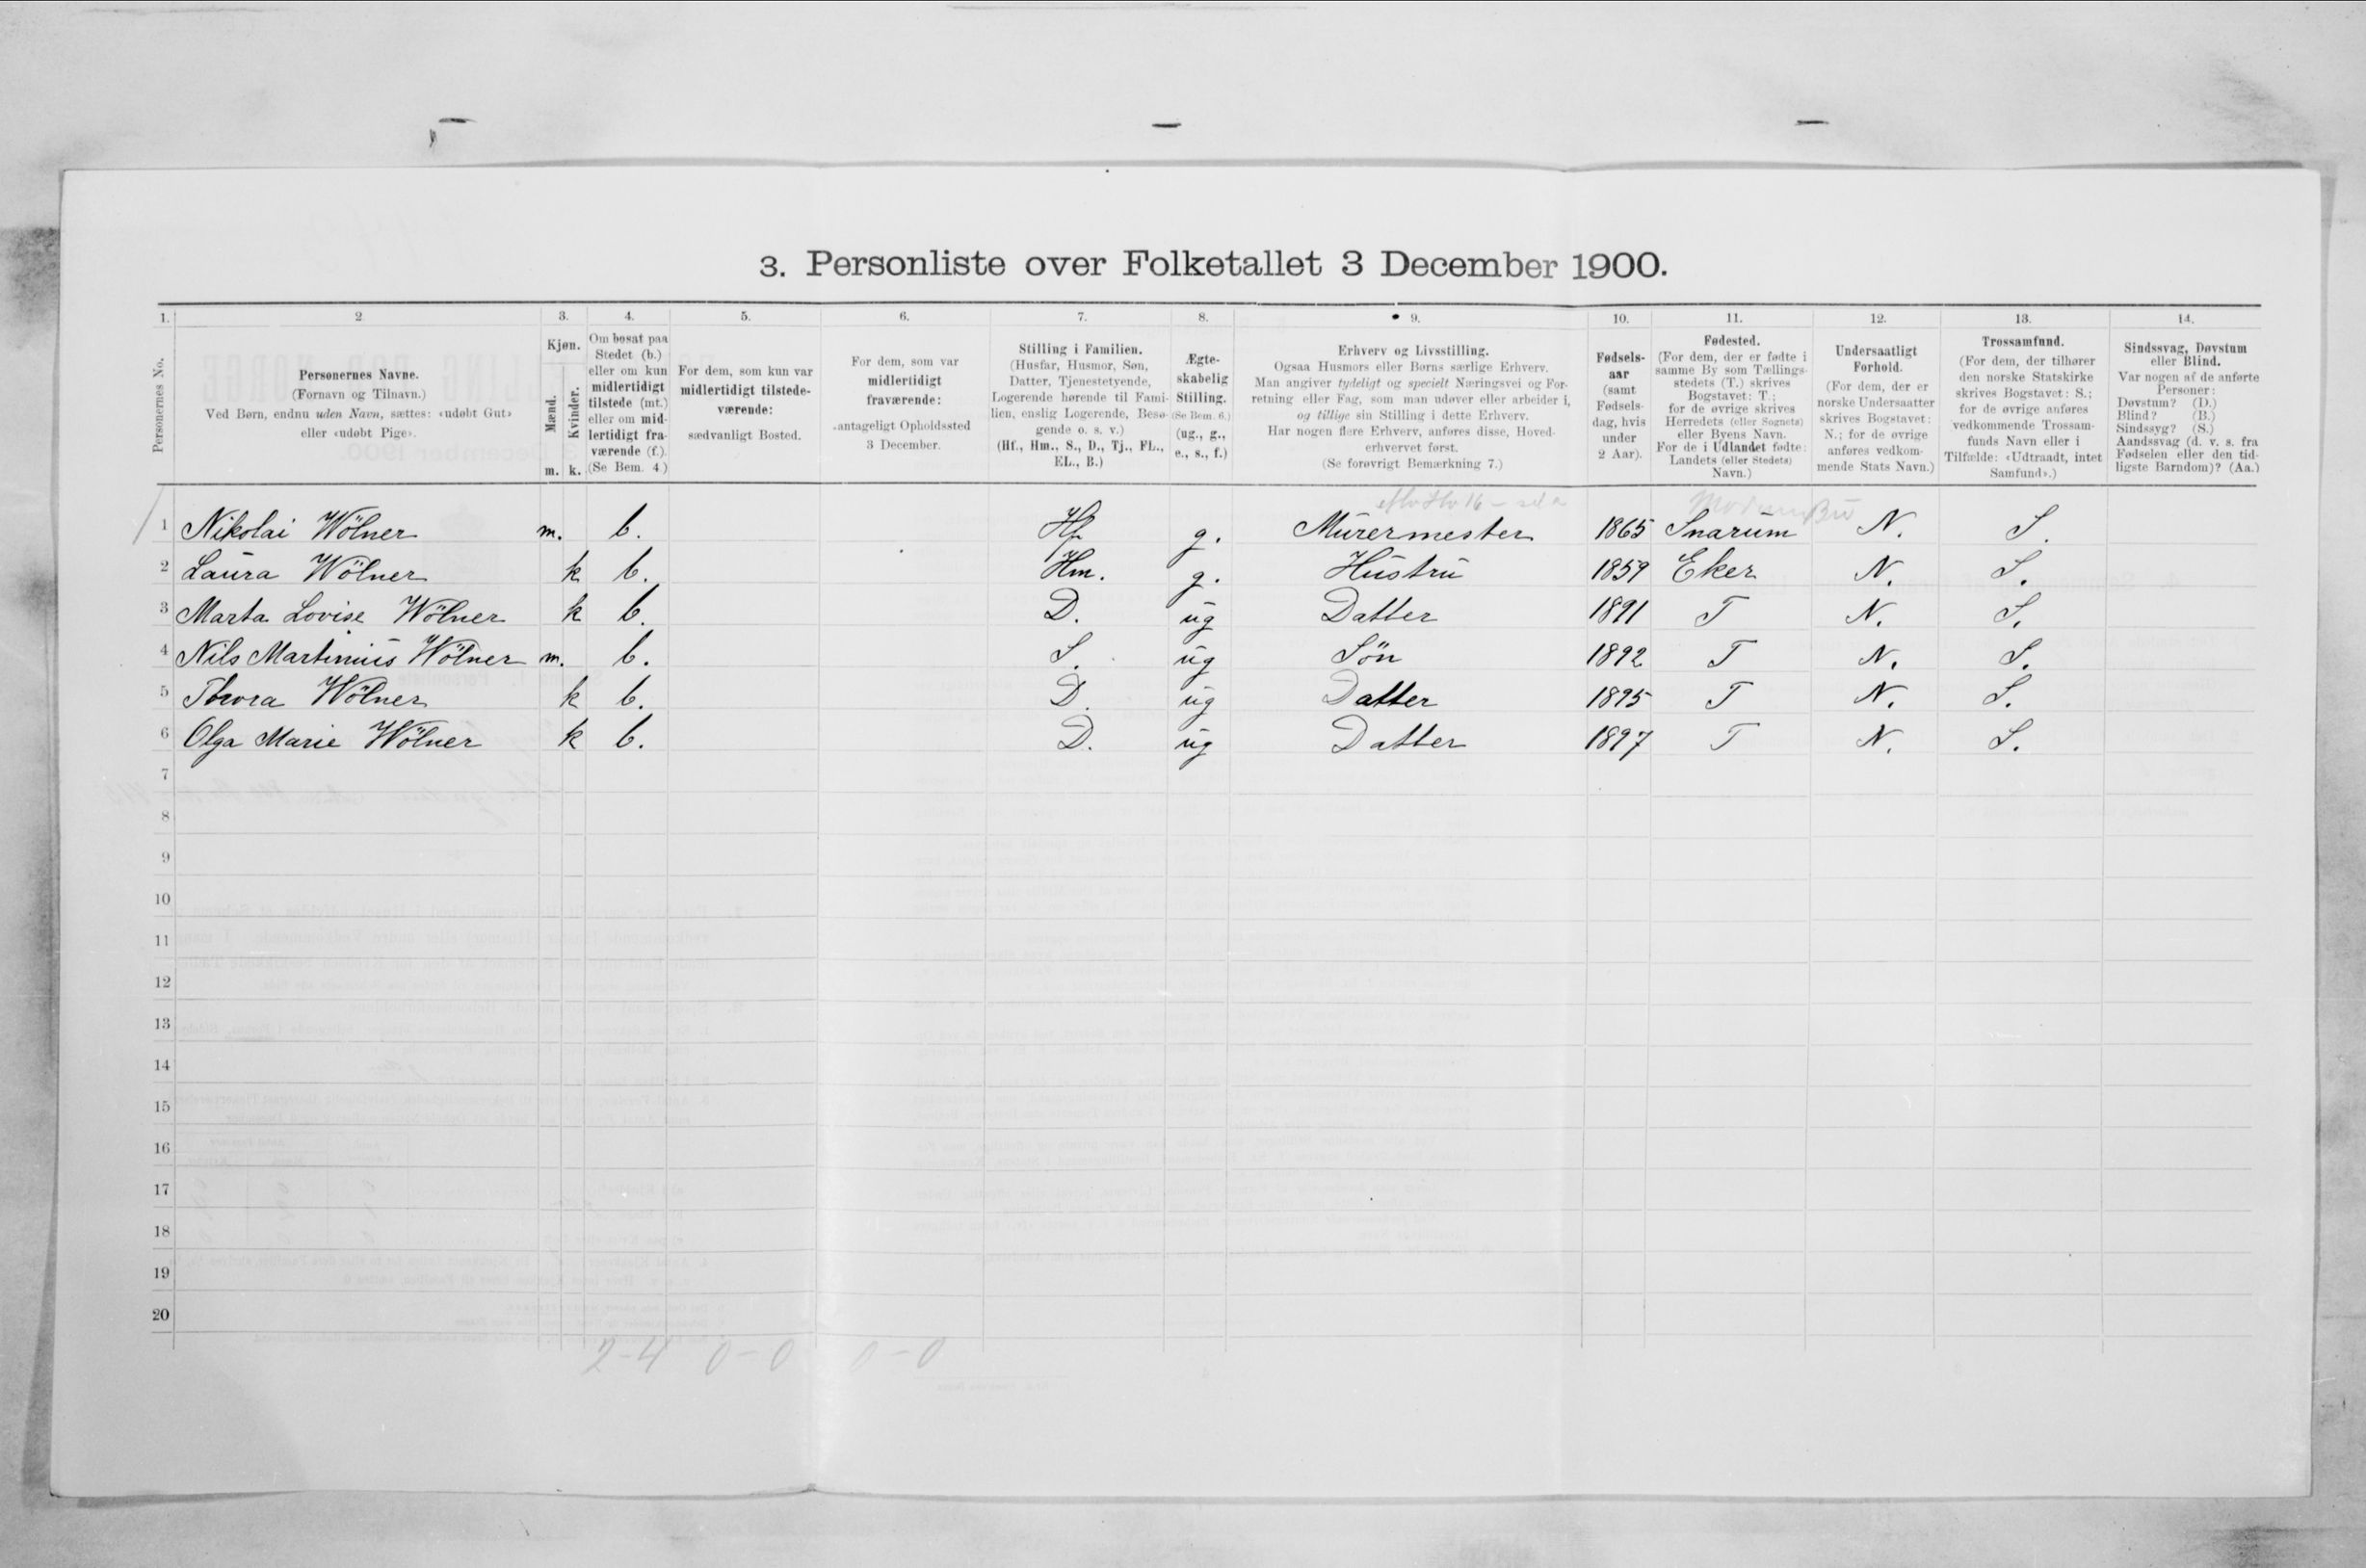 3. Personliste over Folketallet 3 December 1900.
1. 2 3. 4. 5. 6. 7. 8. 9. 10. 11. 12. 13. 14.
Personernes No.
Personernes Navne.
(Fornavn og Tilnavn.)
Ved Børn, endnu uden Navn, sættes: «udøbt Gut»
eller «udøbt Pige».
Kjøn.
Mænd.
Kvinder.
m. k.
Om bosat paa
Stedet (b.)
eller om kun
midlertidigt
tilstede (mt.)
eller om mid-
lertidigt fra-
værende (f.).
(Se Bem. 4.)
For dem, som kun var
midlertidigt tilstede-
værende:
sædvanligt Bosted.
For dem, som var
midlertidigt
fraværende:
antageligt Opholdssted
3 December.
Stilling i Familien.
(Husfar, Husmor, Søn,
Datter, Tjenestetyende,
Logerende hørende til Fami-
lien, enslig Logerende, Besø-
gende o. s. v.)
(Hf., Hm., S., D., Tj., FL.,
EL., B.)
Ægte-
skabelig
Stilling.
(Se Bem. 6.)
(ug., g.,
e., s., f.)
Erhverv og Livsstilling.
Ogsaa Husmors eller Børns særlige Erhverv.
Man angiver tydeligt og specielt Næringsvei og For-
retning eller Fag, som man udøver eller arbeider i,
og tillige sin Stilling i dette Erhverv.
Har nogen flere Erhverv, anføres disse, Hoved-
erhvervet først.
(Se forøvrigt Bemærkning 7.)
Fødsels-
aar
(samt
Fødsels-
dag, hvis
under
2 Aar).
Fødested.
(For dem, der er fødte i
samme By som Tællings-
stedets (T.) skrives
Bogstavet: T.;
for de øvrige skrives
Herredets (eller Sognets)
eller Byens Navn.
For de i Udlandet fødte:
Landets (eller Stedets)
Navn.)
Undersaatligt
Forhold.
(For dem, der er
norske Undersaatter
skrives Bogstavet:
N.; for de øvrige
anføres vedkom-
mende Stats Navn.)
Trossamfund.
(For dem, der tilhører
den norske Statskirke
skrives Bogstavet: S.;
for de øvrige anføres
vedkommende Trossam-
funds Navn eller i
Tilfælde: «Udtraadt, intet
Samfund».)
Sindssvag, Døvstum
eller Blind.
Var nogen af de anførte
Personer:
Døvstum? (D.)
Blind? (B.)
Sindssyg? (S.)
Aandssvag (d. v. s. fra
Fødselen eller den tid-
ligste Barndom)? (Aa.)
Modum Bu
1 Nikolai Wölner m. b. Hf g. Murermester 1865 Snarum N. S.
2 Laura Wölner k b. Hm. g. Hustru 1859 Eker N. S.
3 Marta Lovise Wölner k b. D. ug Datter 1891 T N. S.
4 Nils Martinius Wölner m. b. S. ug Sön 1892 T N. S.
5 Thora Wölner k b. D. ug Datter 1895 T N. S.
6 Olga Marie Wölner k b. D. ug Datter 1897 T N. S.
7
8
9
10
11
12
13
14
15
16
17
18
19
20
2-4 0-0 0-0